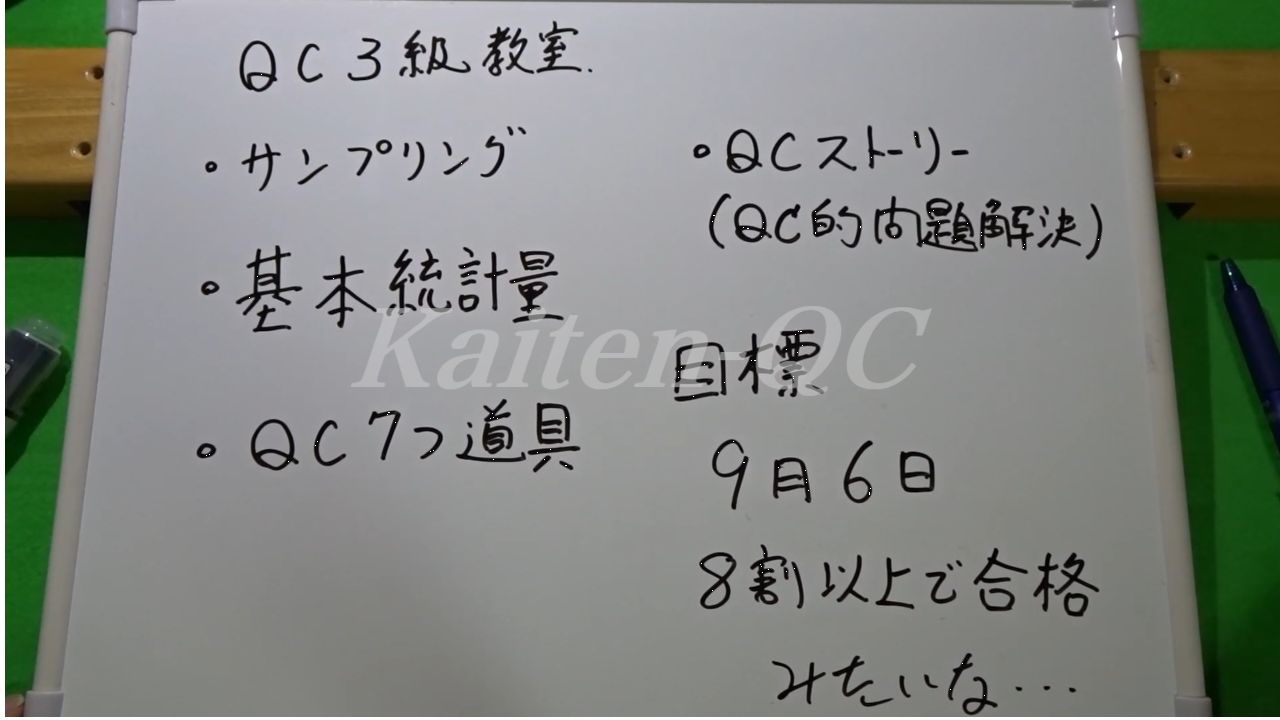 QC3級教室.
・サンプリング
・基本統計量
・QC7つ道具
・QCストーリー
(QC的問題解決)
目標
9月6日
8割以上で合格
みたいな...
Kaiten-QC